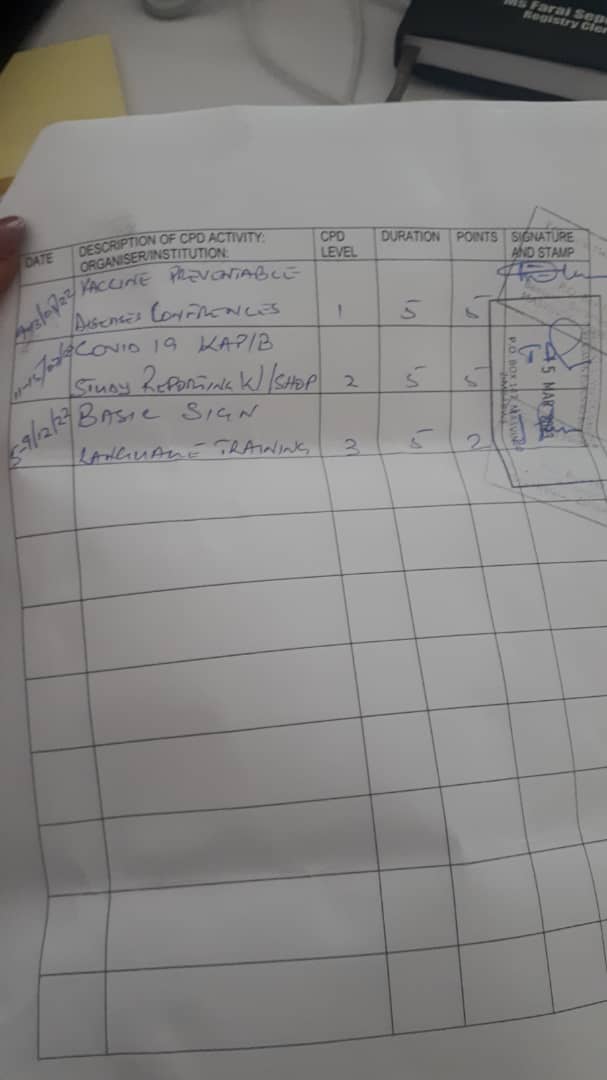 Ms Farai Sep
Registry Cler
DATE
DESCRIPTION OF CPD ACTIVITY:
ORGANISER/INSTITUTION:
CPD
LEVEL
DURATION
POINTS
SIGNATURE
AND STAMP
VACCINE PREVENTABLE
DISEASES CONFERENCES 1 5 5
COVID 19 KAP/B
STUDY REPORTING W/SHOP 2 5 5
5-9/12/22 BASIC SIGN
LANGUAGE TRAINING 3 5 2
5 MAR
P.O. BOX